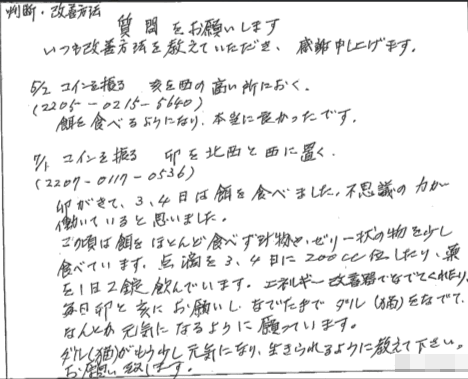 判断・改善方法
質問をお願いします
いつも改善方法を教えていただき、感謝申し上げます。
5/2 コインを振る 亥を西の高い所におく。
(2205-0215-5640)
餌を食べるようになり、本当に良かったです。
7/1 コインを振る 卯を北西と西に置く。
(2207-0117-0536)
卯がきて、3、4日は餌を食べました。不思議の力が
働いていると思いました。
この頃は餌をほとんど食べず汁物と、ゼリー状の物を少し
食べています。点滴を3、4日に200cc位したり、薬
を1日2錠飲んでいます。エネルギー改善器でなでてくれたり、
毎日卯と亥にお願いし、なでた手でダル(猫)をなでて、
なんとか元気になるように願っています。
ダル(猫)がもう少し元気になり、生きられるように教えて下さい。
お願い致します。